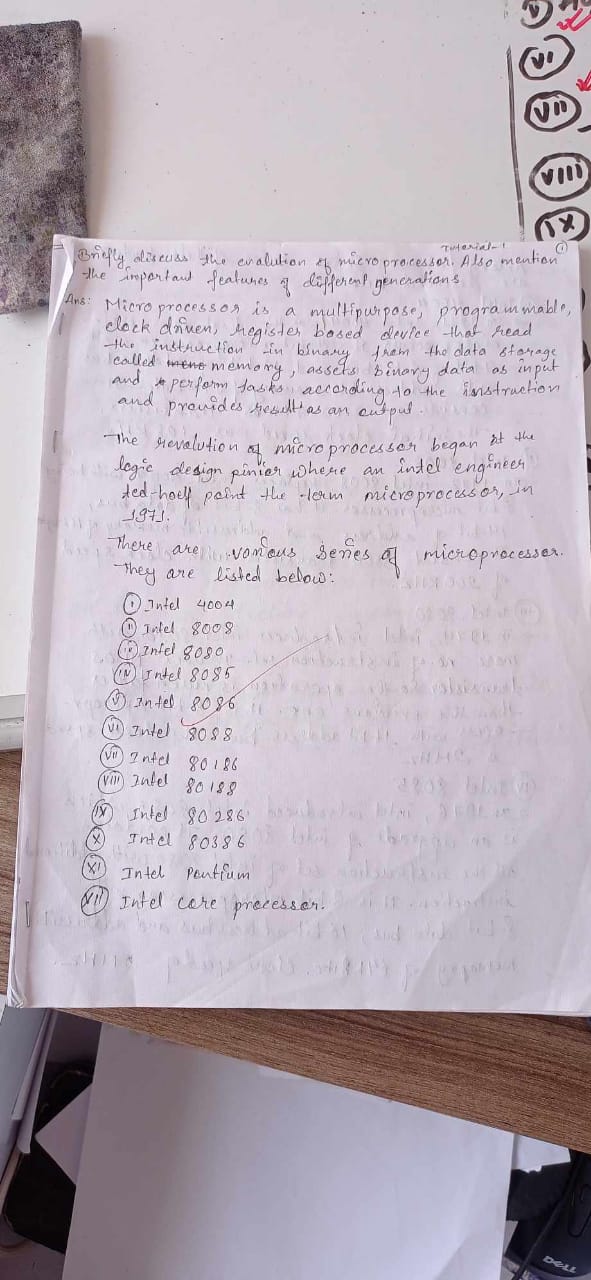 v)
vi
vii
viii
ix
Tutorial-1
1
Briefly discuss the evalution of microprocessor. Also mention
the important features of different generations
Ans: Microprocessor is a multipurpose, programmable,
clock driven, register based device that read
the instruction in binary from the data storage
called memory, assets binary data as input
and perform tasks according to the instruction
and provides result as an output.
The revolution of microprocessor began at the
logic design pinior where an intel engineer
ted-hoff paint the term microprocessor, in
1971.
There are various series of microprocessor.
They are listed below:
i Intel 4004
ii Intel 8008
iii Intel 8080
iv Intel 8085
v Intel 8086
vi Intel 8088
vii Intel 80186
viii Intel 80188
ix Intel 80286
x Intel 80386
xi Intel Pentium
xii Intel core processor.
DELL